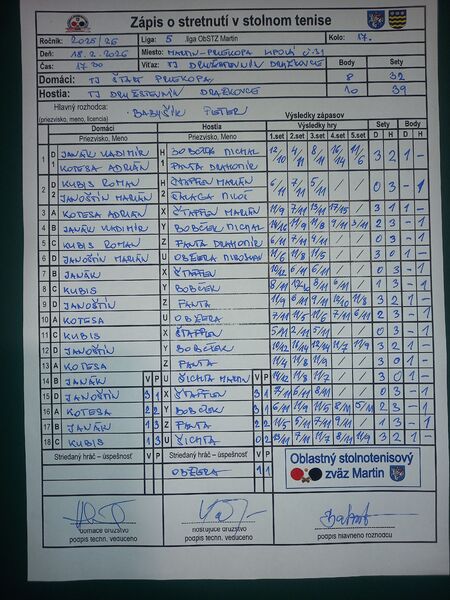 Zápis o stretnutí v stolnom tenise
Ročník: 2025/26 Liga: 5 .liga ObSTZ Martin Kolo: 17.
Deň: 18.2.2026 Miesto: MARTIN-PRIEKOPA LIPOVÁ
Čas: 17 30 Víťaz: TJ DRUŽSTEVNÍK DRAŽKOVCE Body Sety
Domáci: TJ ŠTART PRIEKOPA 8 32
Hostia: TJ DRUŽSTEVNÍK DRAŽKOVCE 10 39
Hlavný rozhodca: PETER
(priezvisko, meno, licencia)
Domáci Hostia Výsledky zápasov
Priezvisko, Meno Priezvisko, Meno Výsledky hry Sety Body
1.set 2.set 3.set 4.set 5.set D H D H
1 D JANÁK VLADIMÍR H BOBČEK MICHAL 12/10 4/11 8/11 16/14 11/6 3 2 1 -
1 KOTESA ADRIÁN 1 PANTA DRAHOMÍR
2 D KUBIS ROMAN H ŠTAFFEN MARIÁN 6/11 7/11 5/11 / / 0 3 - 1
2 JANOŠTÍN MARIÁN 2
3 A KOTESA ADRIÁN X ŠTAFFEN MARIÁN 11/9 7/11 13/11 17/15 / 3 1 1 -
4 B JANÁK VLADIMÍR Y BOBČEK MICHAL 14/16 11/9 11/8 9/11 3/11 2 3 - 1
5 C KUBIS ROMAN Z PANTA DRAHOMÍR 6/11 7/11 9/11 / / 0 3 - 1
6 D JANOŠTÍN MARIÁN U OBŽERA MIROSLAV 11/6 11/8 11/5 / / 3 0 1 -
7 B JANÁK X ŠTAFFEN 10/12 6/11 6/11 / / 0 3 - 1
8 C KUBIS Y BOBČEK 8/11 3/11 6/11 / 1 3 - 1
9 D JANOŠTÍN Z PANTA 11/4 6/11 9/11 11/8 3 2 1 -
10 A KOTESA U OBŽERA 7/11 11/5 11/5 7/11 6/11 2 3 - 1
11 C KUBIS X ŠTAFFEN 5/11 2/11 5/11 / / 0 3 - 1
12 D JANOŠTÍN Y BOBČEK 10/12 11/4 11/7 11/9 3 2 1 -
13 A KOTESA Z PANTA 11/4 11/8 11/9 / / 3 0 1 -
14 B JANÁK V P U ŠICHTA MARTIN V P 11/8 11/7 / / 3 0 1 -
15 D JANOŠTÍN 3 1 X ŠTAFFEN 3 1 7/11 6/11 / / 0 3 - 1
16 A KOTESA 2 2 Y BOBČEK 3 1 6/11 11/9 11/5 8/11 5/11 2 3 - 1
17 B JANÁK 1 3 Z PANTA 2 2 / / 0 3 - 1
18 C KUBIS 1 3 U ŠICHTA 0 2 7/11 11/7 8/11 11/9 3 2 1 -
Striedaný hráč - úspešnosť V P Striedaný hráč - úspešnosť V P
OBŽERA 1 1
Oblastný stolnotenisový
zväz Martin
domáce družstvo hosťujúce družstvo
podpis techn. vedúceho podpis techn. vedúceho podpis hlavného rozhodcu